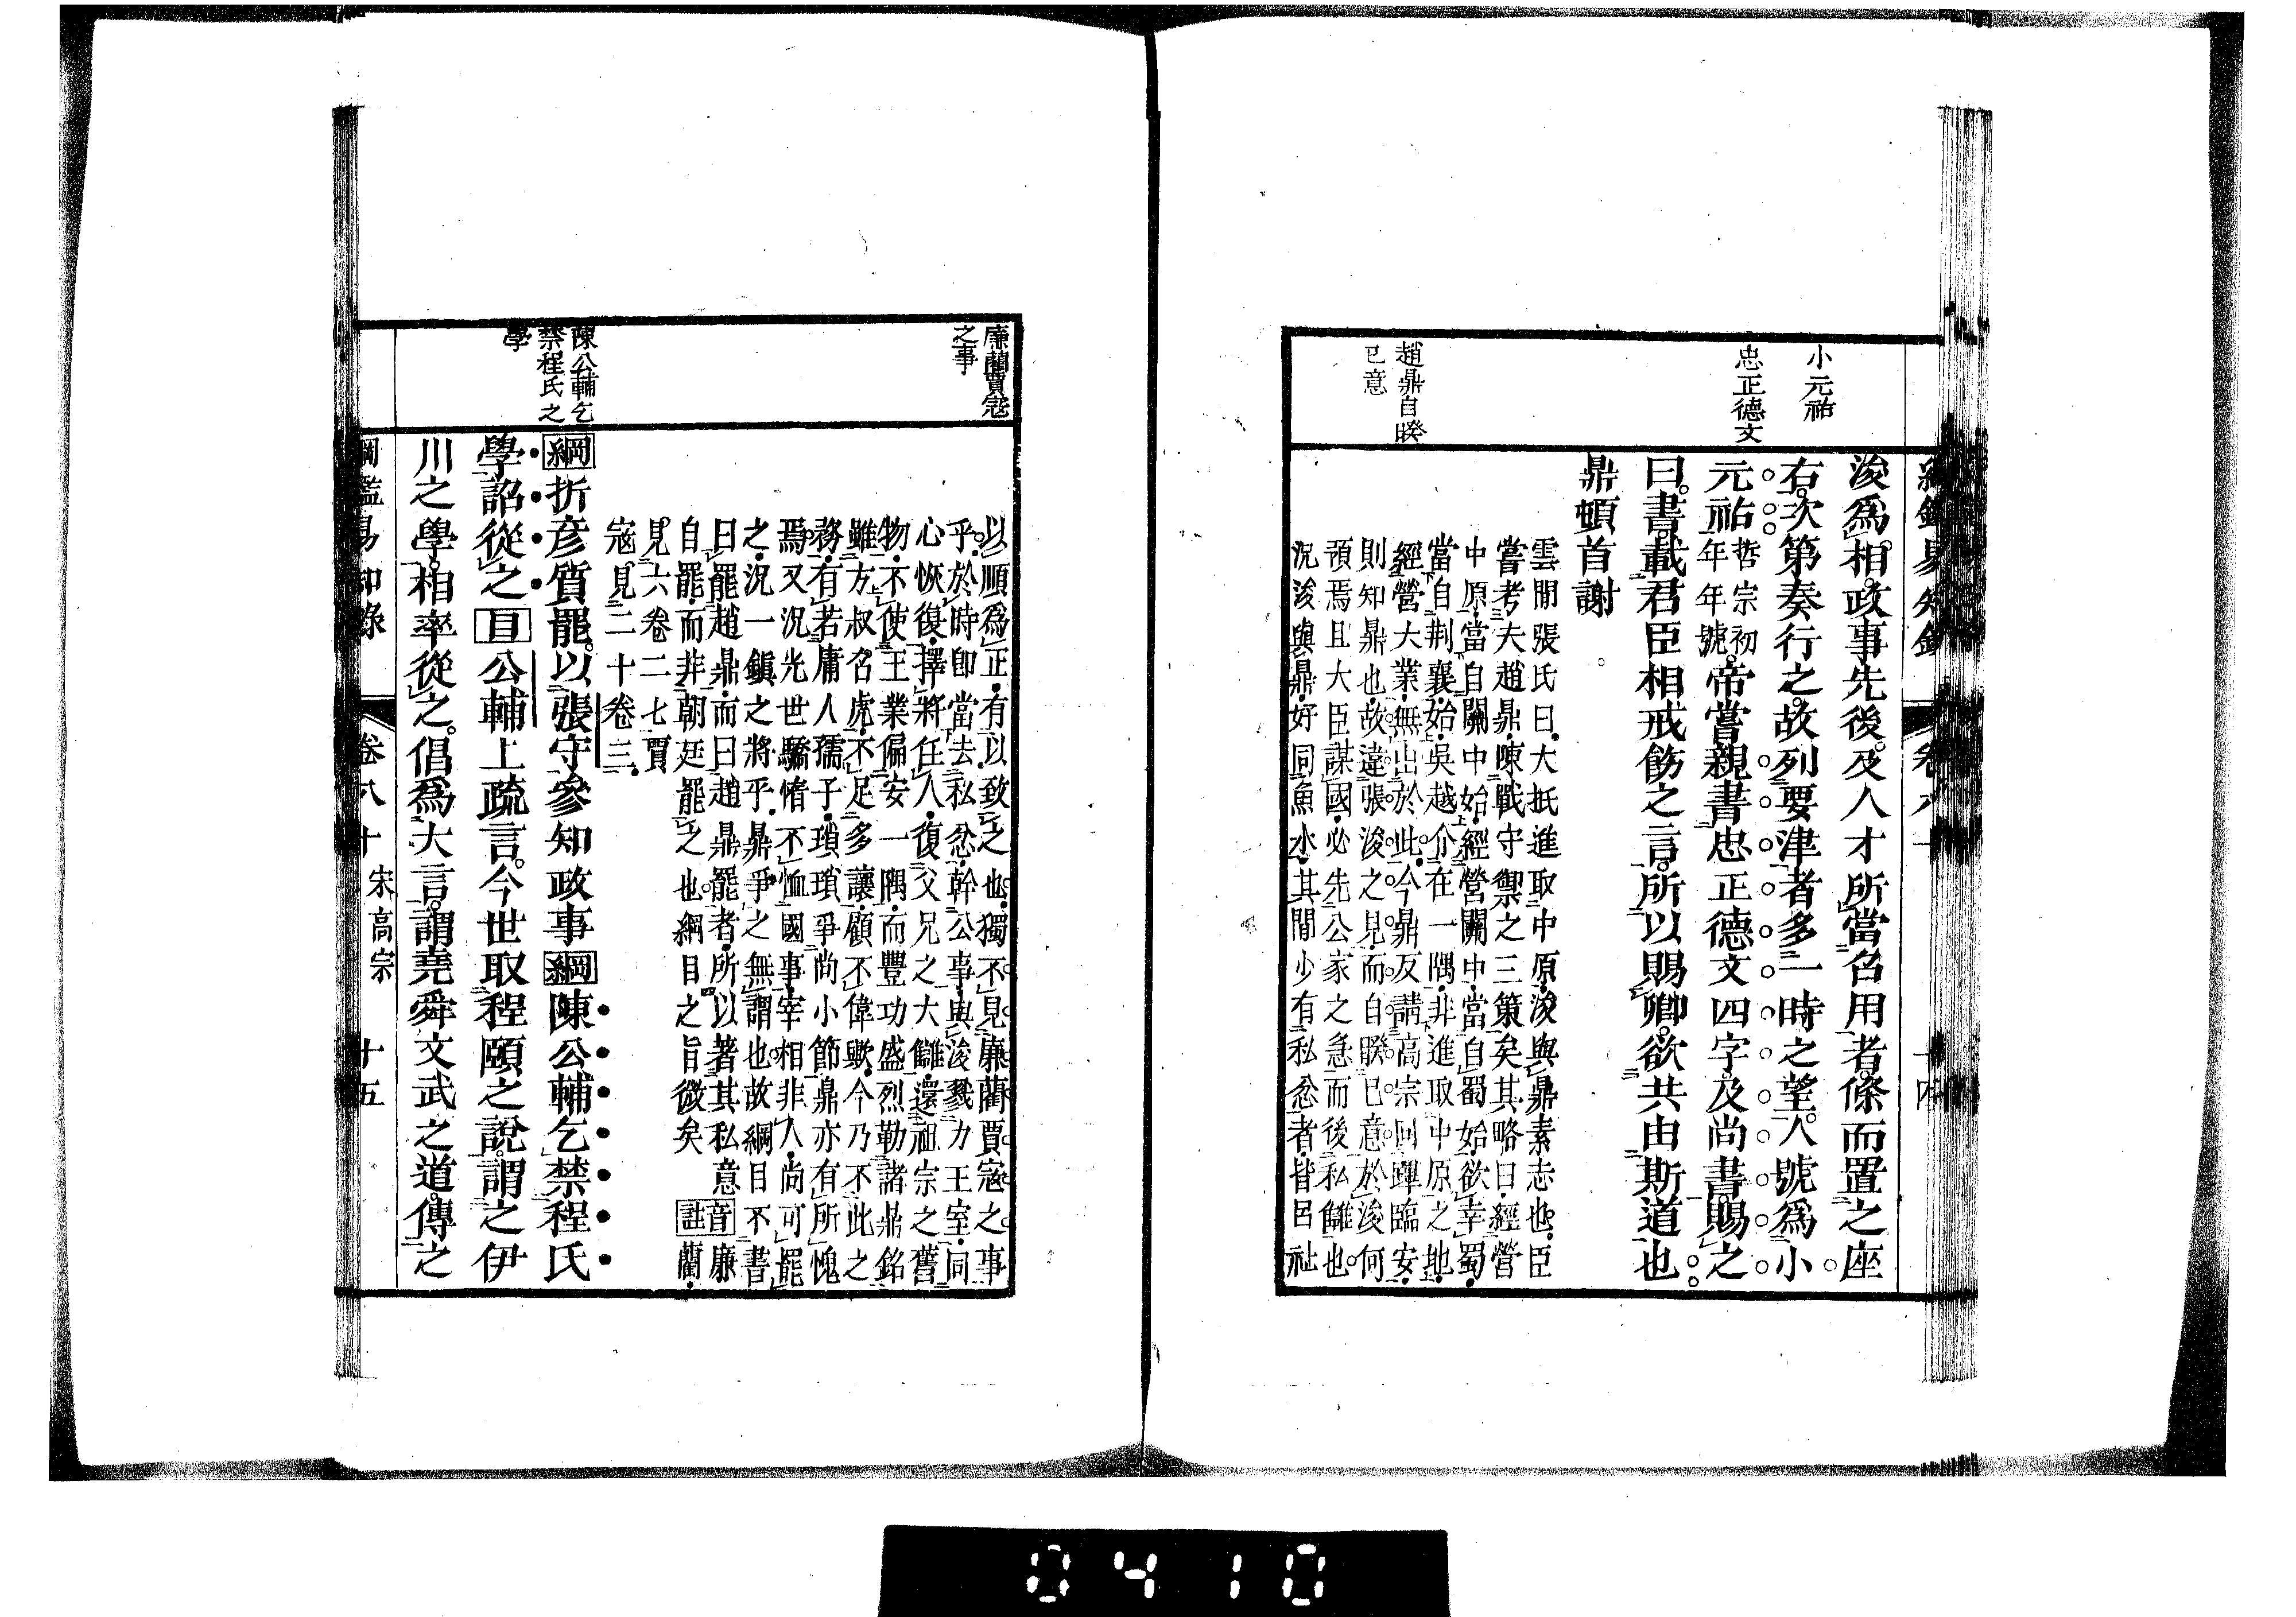 小元祐
忠正德文
趙鼎自暌
已意
浚爲相政事先後及人才所當召用者條而置之座
右次第奏行之故列要津者多一時之望人號爲小
元祐哲宗初年年號帝嘗親書忠正德文四字及尚書賜之
曰書載君臣相戒飭之言所以賜卿欲共由斯道也
鼎頓首謝
雲間張氏曰大抵進取中原浚與鼎素志也臣
嘗考夫趙鼎陳戰守禦之三策矣其略曰經營
中原當自關中始經營關中當自蜀始欲幸蜀
當自荆襄始吳越介在一隅非進取中原之地
經營大業無出於此今鼎反請高宗回蹕臨安
則知鼎也故違張浚之見而自暌已意於浚何
預焉且大臣謀國必先公家之急而後私雠也
況浚與鼎好同魚水其間少有私忿者皆呂祉
廉藺賈寇
之事
陳公輔乞
禁程氏之
學
以順爲正有以致之也獨不見廉藺賈寇之事
乎於時卽當去私忿幹公事與浚戮力王室同
心恢復擇將任人復父兄之大雠還祖宗之舊
物不使王業偏安一隅而豐功盛烈勒諸鼎銘
雖方叔召虎不足多讓顧不偉歟今乃不此之
務有若庸人孺子瑣瑣爭尚小節鼎亦有所愧
焉又況光世驕惰不恤國事宰相非人尚可罷
之況一鎭之將乎鼎爭之無謂也故綱目不書
曰罷趙鼎而曰趙鼎罷者所以著其私意音註廉
自罷而非朝廷罷之也綱目之旨微矣藺
見六卷二七賈
寇見二十卷三
綱折彥質罷以張守參知政事綱陳公輔乞禁程氏
學詔從之目公輔上疏言今世取程頤之說謂之伊
川之學相率從之倡爲大言謂堯舜文武之道傳之
綱鑑易知錄 卷八十 宋高宗 十五